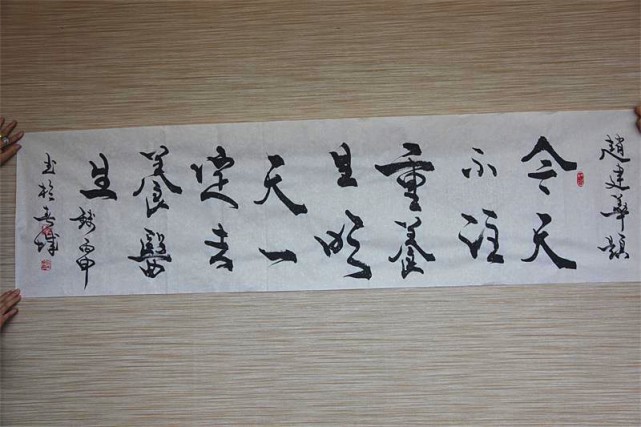 趙建華題
今天
不注
重養
生明
天一
定去
養醫
生
丙申
書於春城